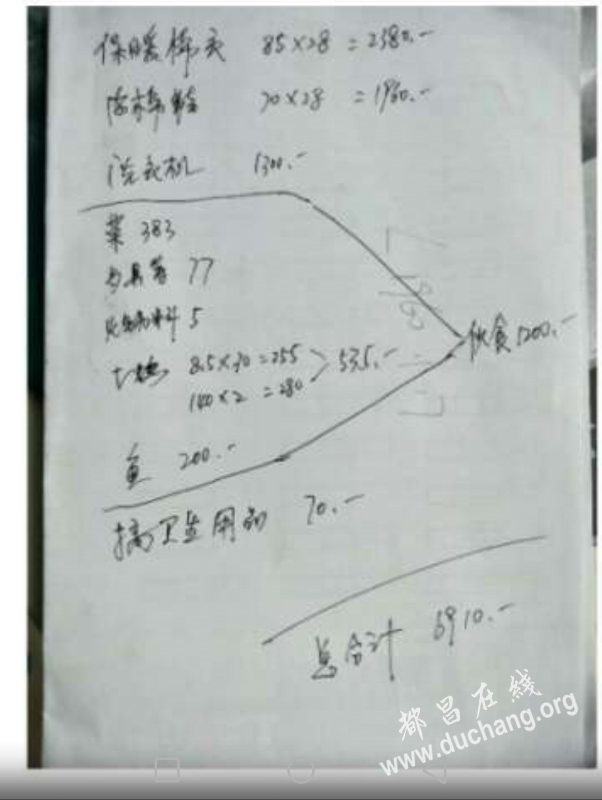 保暖棉衣 85×28 = 2380.-
70×28 = 1960.-
洗衣机 1300.-
菜 383
77
5
8.5×30 = 255
140×2 = 280
535.-
鱼 200.-
伙食 1200.-
搞卫生用品 70.-
总合计 6910.-
都昌在線
www.duchang.org